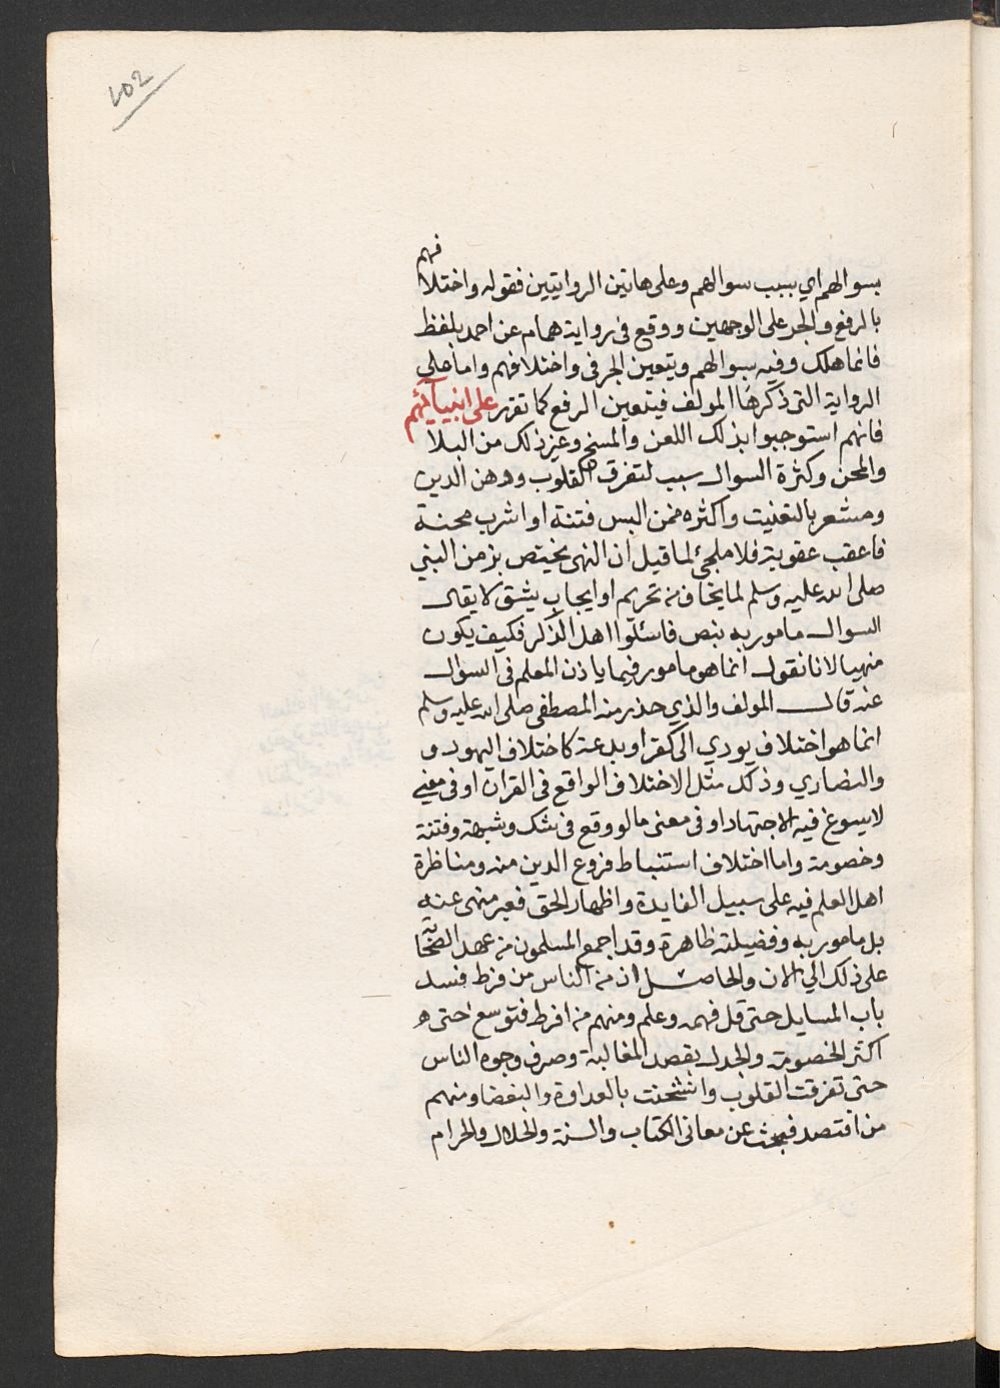 102
فهم
بسوالهم اي بسبب سوالهم وعلى هاتين الروايتين فقوله واختلا
بالرفع والجر على الوجهين ووقع في رواية همام عن احمد بلفظ
فانما هلك وفيه بسوالهم ويتعين الجر في واختلافهم واما على
الرواية التي ذكرها المولف فيتعين الرفع كما تقرر على انبيآئهم
فانهم استوجبوا بذلك اللعن والمسخ وغير ذلك من البلا
والمحن وكثرة السوال سبب لتفرق القلوب ووهن الدين
ومشعر بالتعنيت واكثره ممن البس فتنة او اشرب محنة
فاعقب عقوبة فلا ملجئ لما قيل ان النهى يختص بزمن النبي
صلى الله عليه وسلم لما يخاف من تحريم او ايجاب يشق لا يقال
السوال مامور به بنص فاسئلوا اهل الذكر فكيف يكون
منهيا لانا نقول انما هو مامور فيما ياذن المعلم في السؤال
عنه قال المولف والذي حذر منه المصطفى صلى الله عليه وسلم
انما هو اختلاف يودي الى كفر او بدعة كاختلاف اليهود و
والنصاري وذلك مثل الاختلاف الواقع في القران او في معنى
لا يسوغ فيه الاجتهاد او في معنى ما لو وقع في شك وشبهة وفتنة
وخصومة واما اختلاف استنباط فروع الدين منه ومناظرة
اهل العلم فيه على سبيل الفايدة واظهار الحق فغير منهى عنه
بل مامور به وفضيلته ظاهرة وقد اجمع المسلمون من عهد الصحابة
على ذلك الي الان والحاصل ان من الناس من فرط فسد
باب المسايل حتى قل فهمه وعلم ومنهم من افرط فتوسع حتى
اكثر الخصومة والجدل بقصد المغالبة وصرف وجوه الناس
حتى تفرقت القلوب وانشحنت بالعداوة والبغضا ومنهم
من اقتصد فبحث عن معاني الكتاب والسنة والحلال والحرام